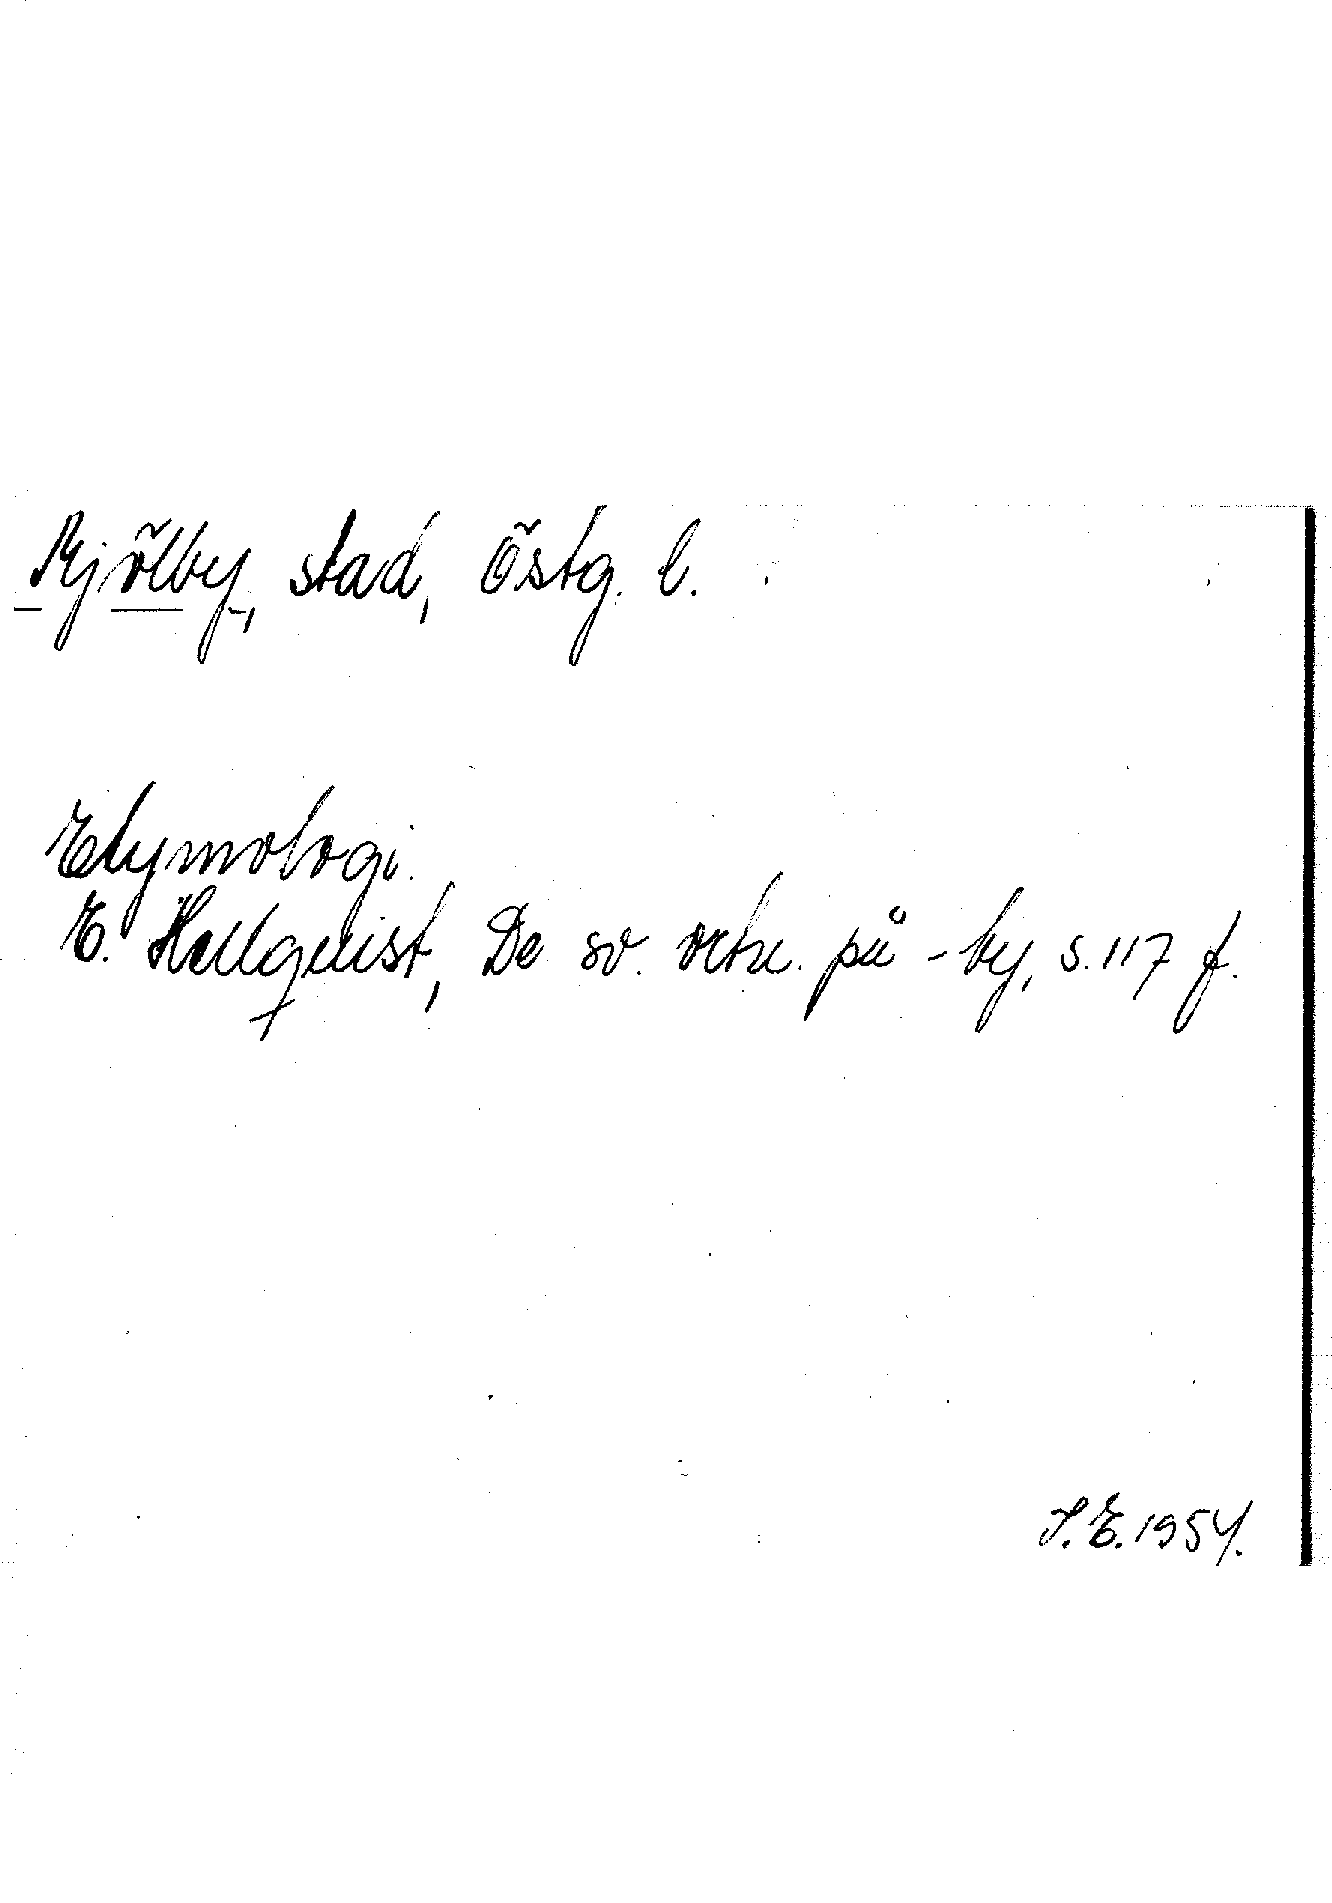 Mjölby, stad, Östg. l.
Etymologi.
E. Hellquist, De sv. ortn. på -by, s. 117 f.
S. E. 1954.